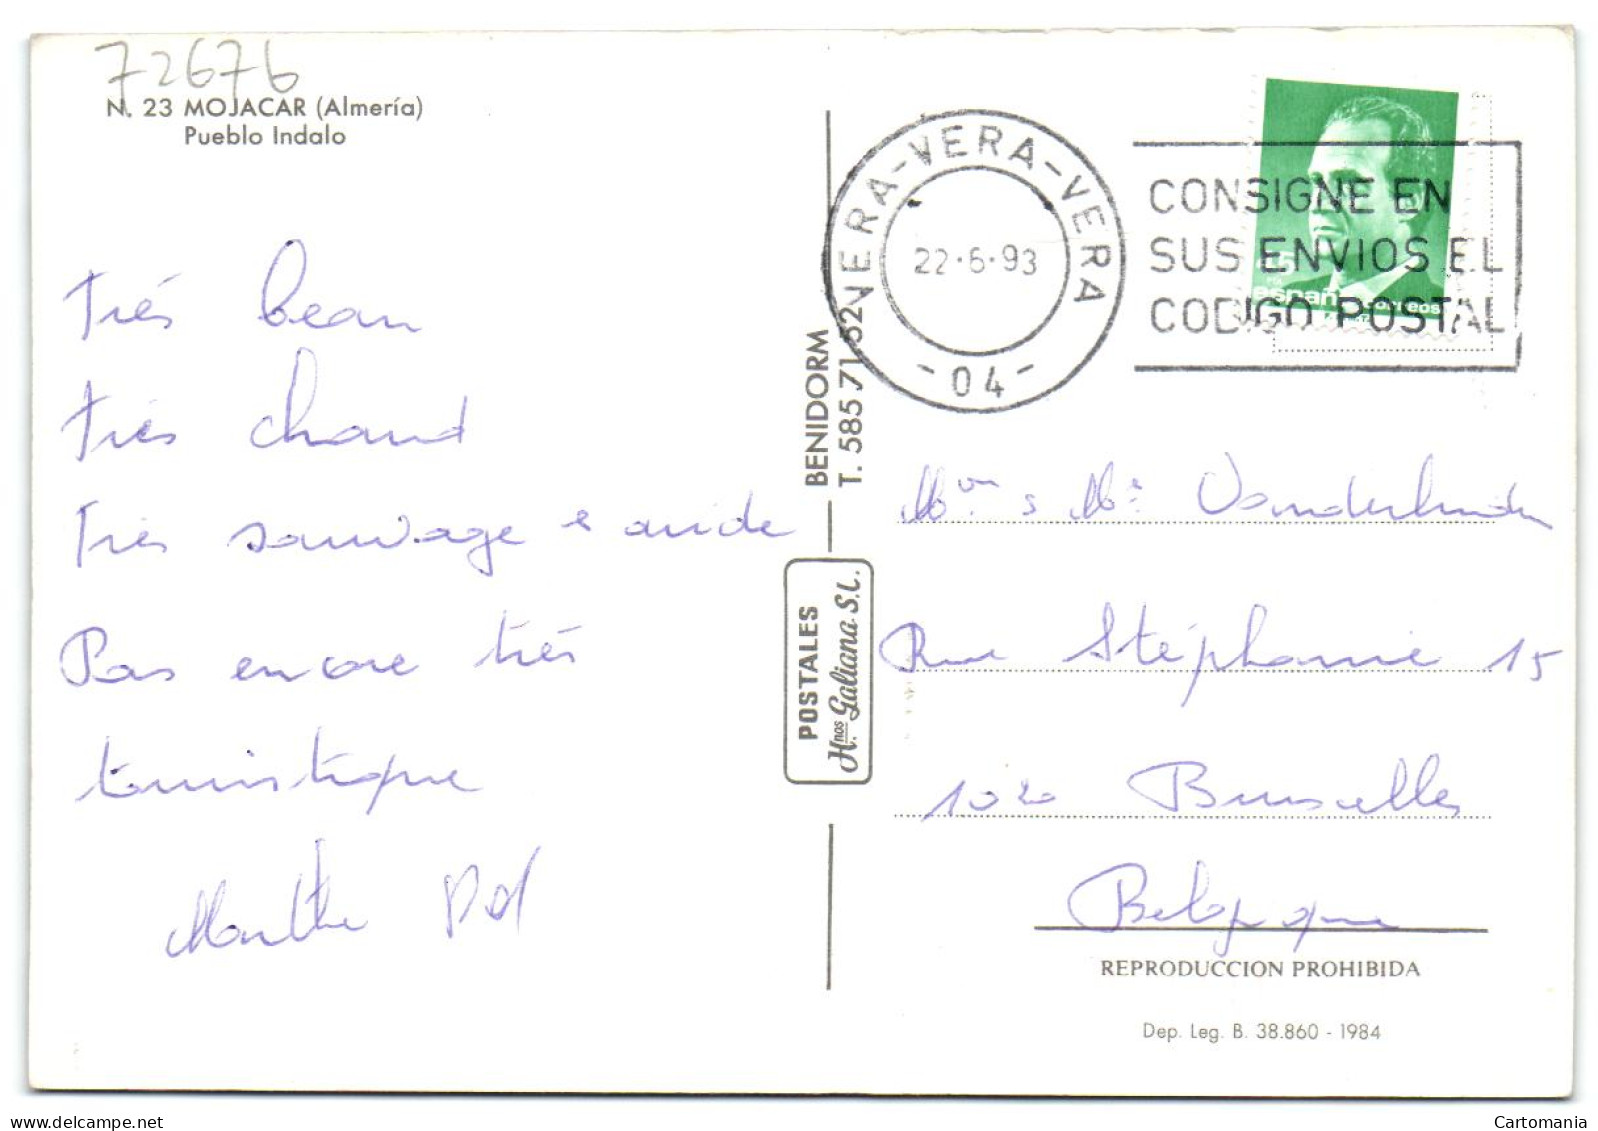 72676
N. 23 MOJACAR (Almería)
Pueblo Indalo
Très beau
Très chaud
Très sauvage & aride
Pas encore très
touristique
Marthe
BENIDORM
T. 585 71 52
POSTALES
Hnos. Galiana S.L.
VERA-VERA-VERA
22·6·93
- 04 -
CONSIGNE EN
SUS ENVIOS EL
CODIGO POSTAL
45
PTA
españa correos
Vanderlinden
Rue Stéphanie 15
1020 Bruxelles
Belgique
REPRODUCCION PROHIBIDA
Dep. Leg. B. 38.860 - 1984
Cartomania